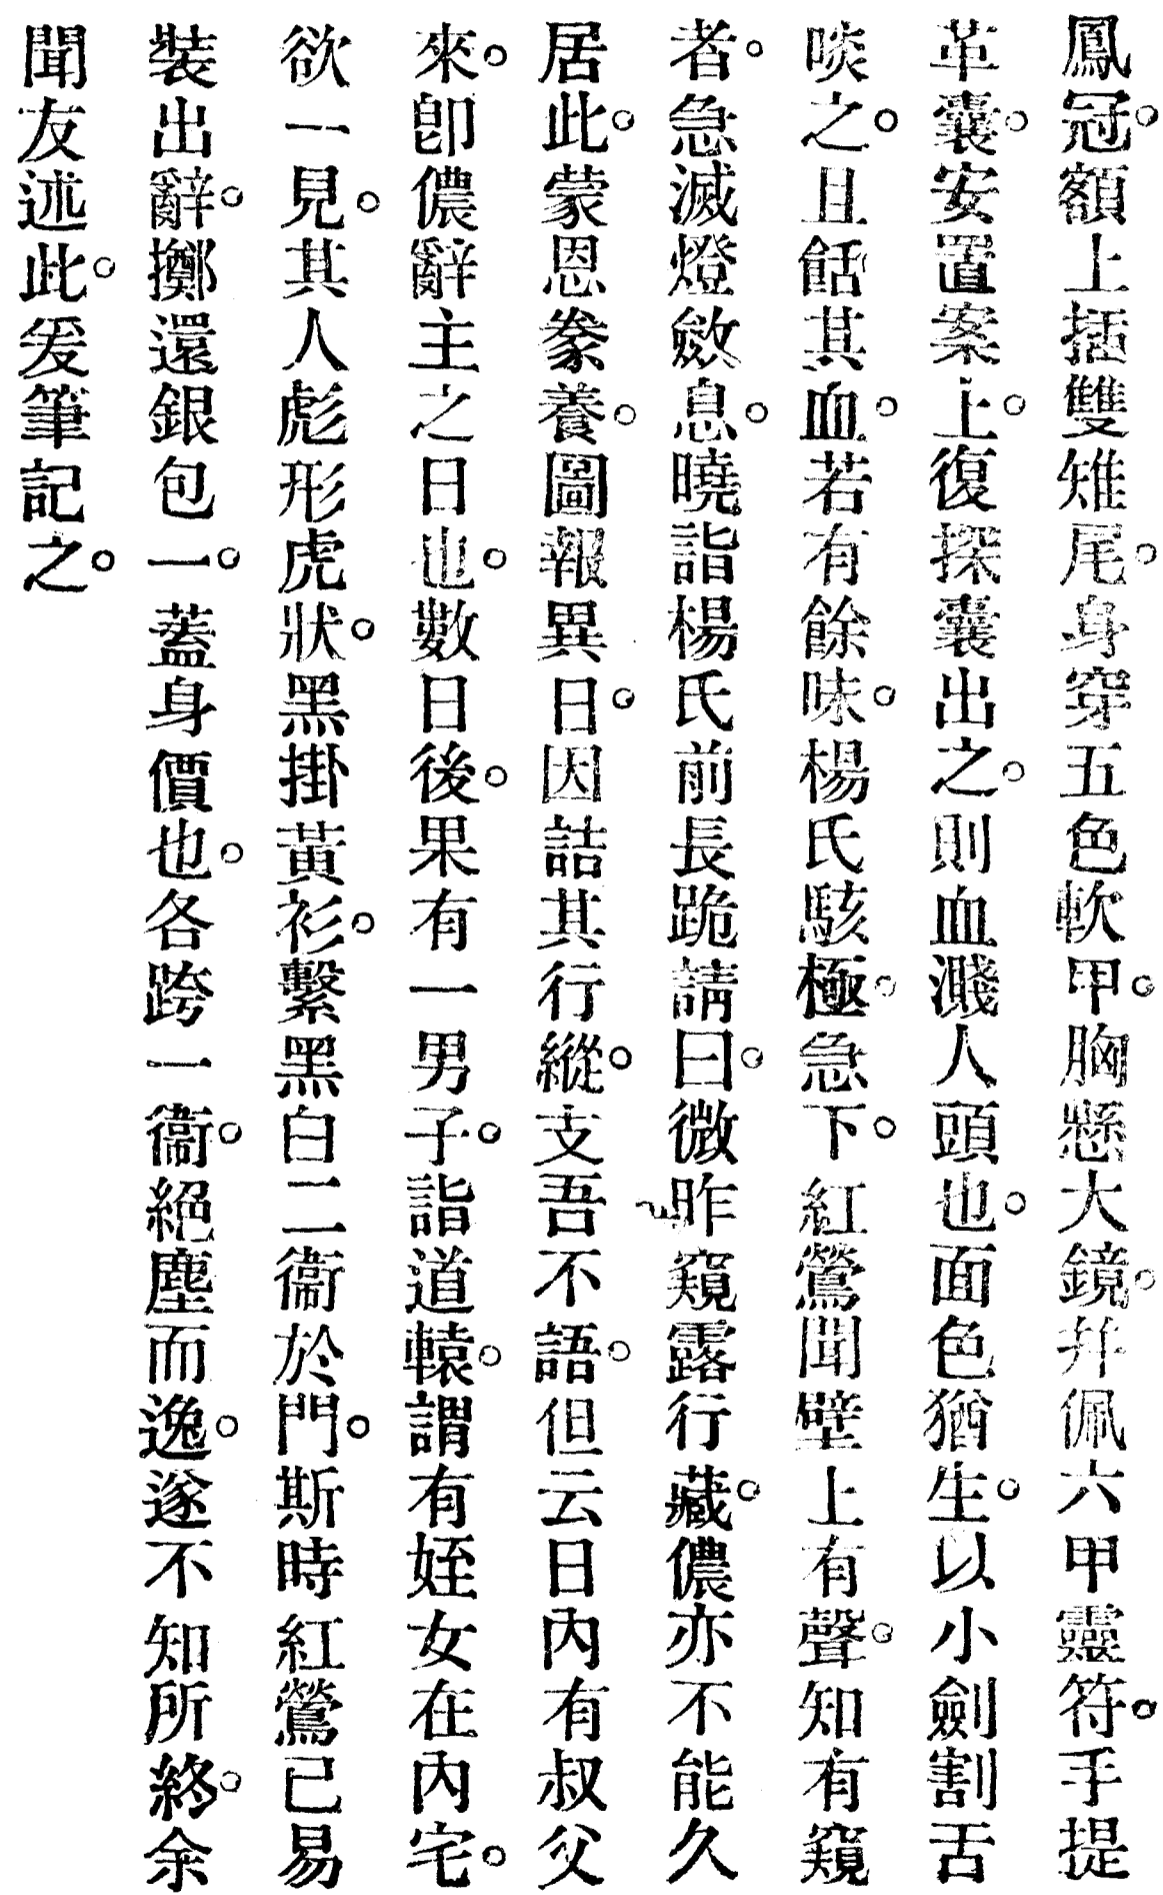 鳳冠。額上插雙雉尾。身穿五色軟甲。胸懸大鏡。幷佩六甲靈符。手提
革囊。安置案上。復探囊出之。則血濺人頭也。面色猶生。以小劍割舌
啖之。且餂其血。若有餘味。楊氏駭極。急下。紅鶯聞壁上有聲。知有窺
者。急滅燈斂息。曉詣楊氏前長跪請曰。微昨窺露行藏。儂亦不能久
居此。蒙恩豢養。圖報異日。因詰其行縱。支吾不語。但云日內有叔父
來。卽儂辭主之日也。數日後。果有一男子。詣道轅。謂有姪女在內宅。
欲一見。其人彪形虎狀。黑掛黃衫。繫黑白二衞於門。斯時紅鶯已易
裝出辭。擲還銀包一。蓋身價也。各跨一衞。絕塵而逸。遂不知所終。余
聞友述此。爰筆記之。